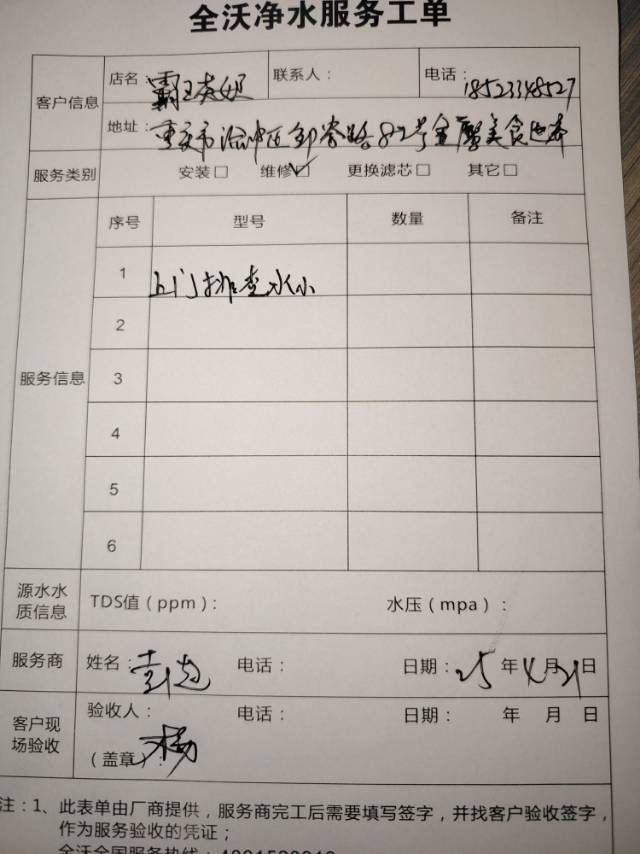 全沃净水服务工单
客户信息
店名 霸王茶姬 联系人： 电话： 18523348527
地址： 重庆市渝中区邹容路82号 美食
服务类别 安装□ 维修☑ 更换滤芯□ 其它□
服务信息
序号 型号 数量 备注
1 上门排查水小
2
3
4
5
6
源水水质信息 TDS值（ppm）： 水压（mpa）：
服务商 姓名： 电话： 日期：25 年 4 月 21 日
客户现场验收 验收人： 电话： 日期： 年 月 日
（盖章） 杨
注：1、此表单由厂商提供，服务商完工后需要填写签字，并找客户验收签字，
作为服务验收的凭证；
全沃全国服务热线：